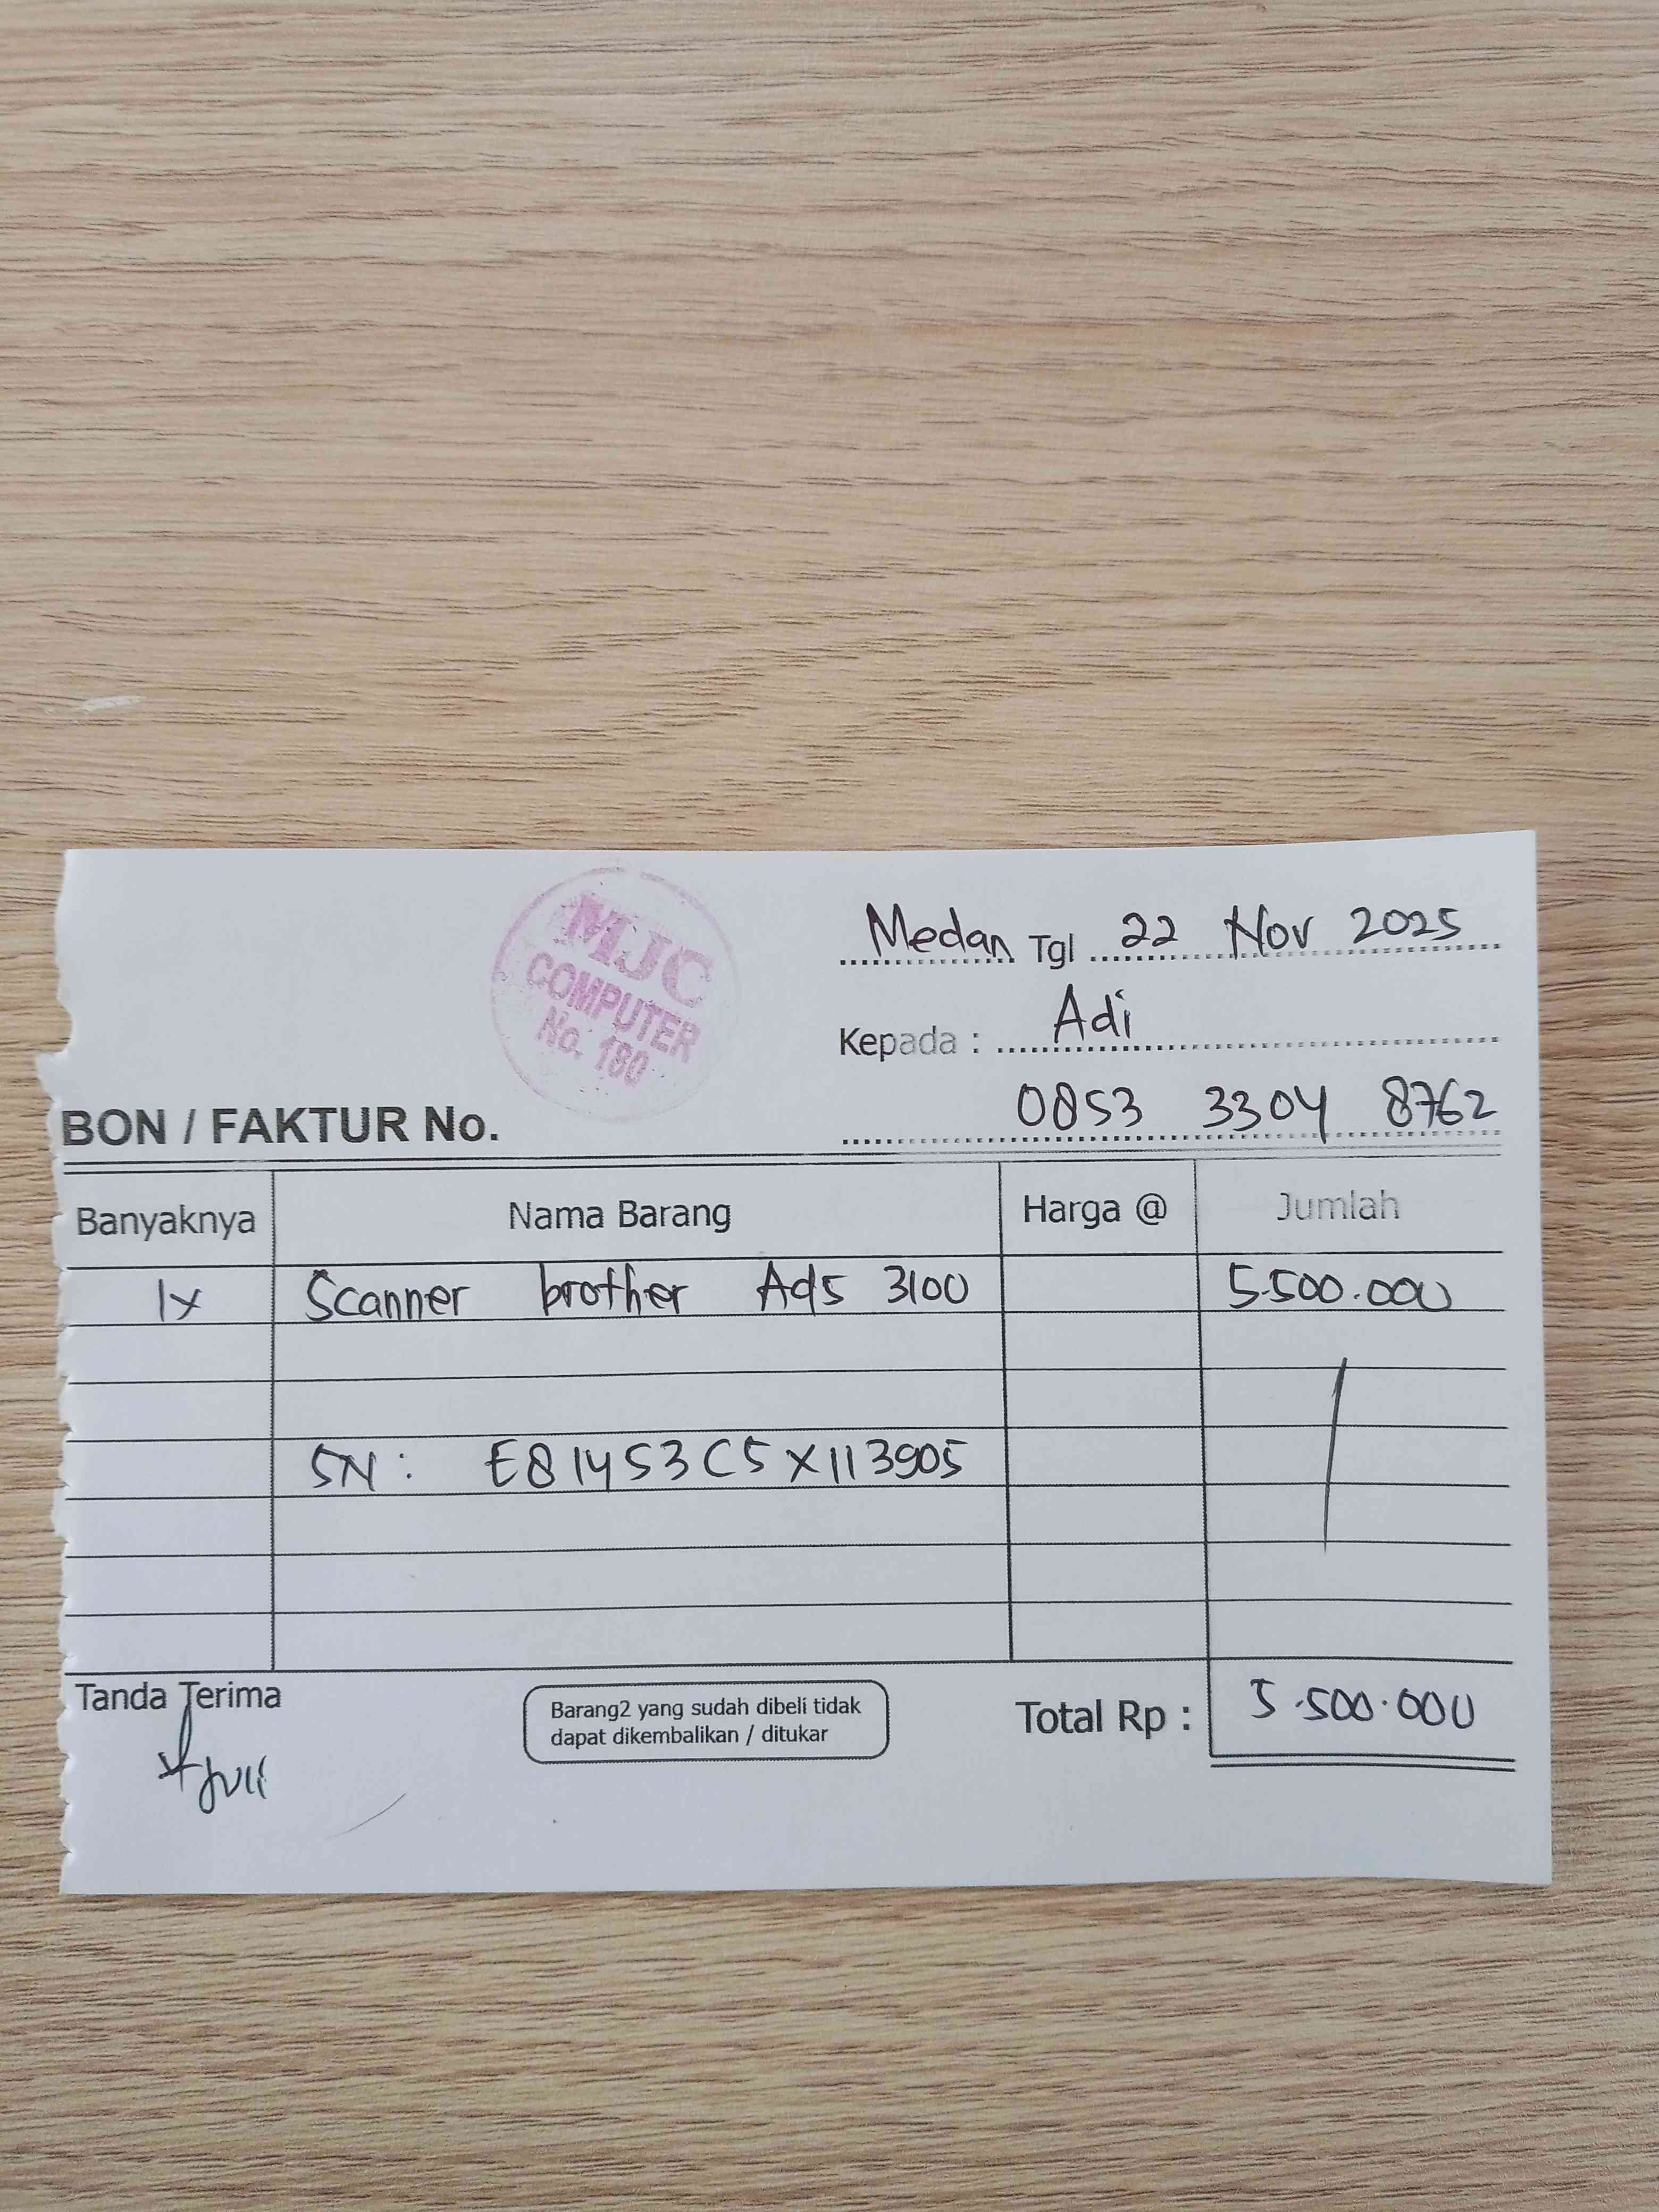 MJC
COMPUTER
No. 180
Medan Tgl 22 Nov 2025
Kepada : Adi
0853 3304 8762
BON / FAKTUR No.
Banyaknya Nama Barang Harga @ Jumlah
1x Scanner brother Ads 3100 5.500.000
SN : E81453C5X113905
Tanda Terima
Barang2 yang sudah dibeli tidak
dapat dikembalikan / ditukar
Total Rp : 5.500.000